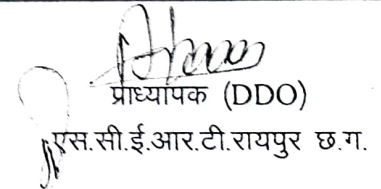 प्राध्यापक (DDO)
एस.सी.ई.आर.टी.रायपुर छ.ग.